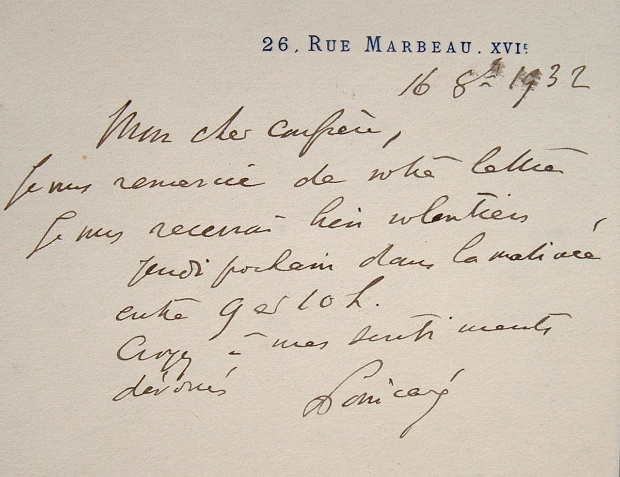 26, RUE MARBEAU. XVIᵉ
16 8bre 1932
Mon cher confrère,
Je vous remercie de votre lettre
Je vous recevrai bien volontiers,
jeudi prochain dans la matinée
entre 9 et 10 h.
Croyez à mes sentiments
dévoués Poincaré